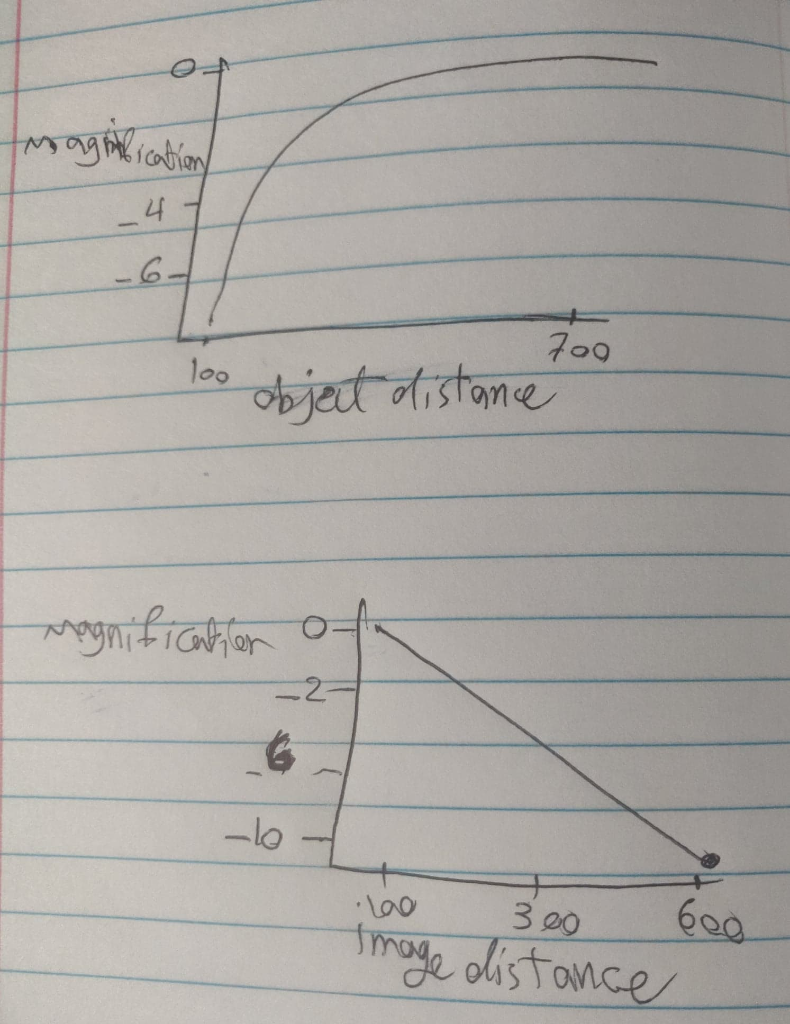 0
magnification
-4
-6
100
700
object distance
magnification
0
-2
-6
-10
100
300
600
Image distance